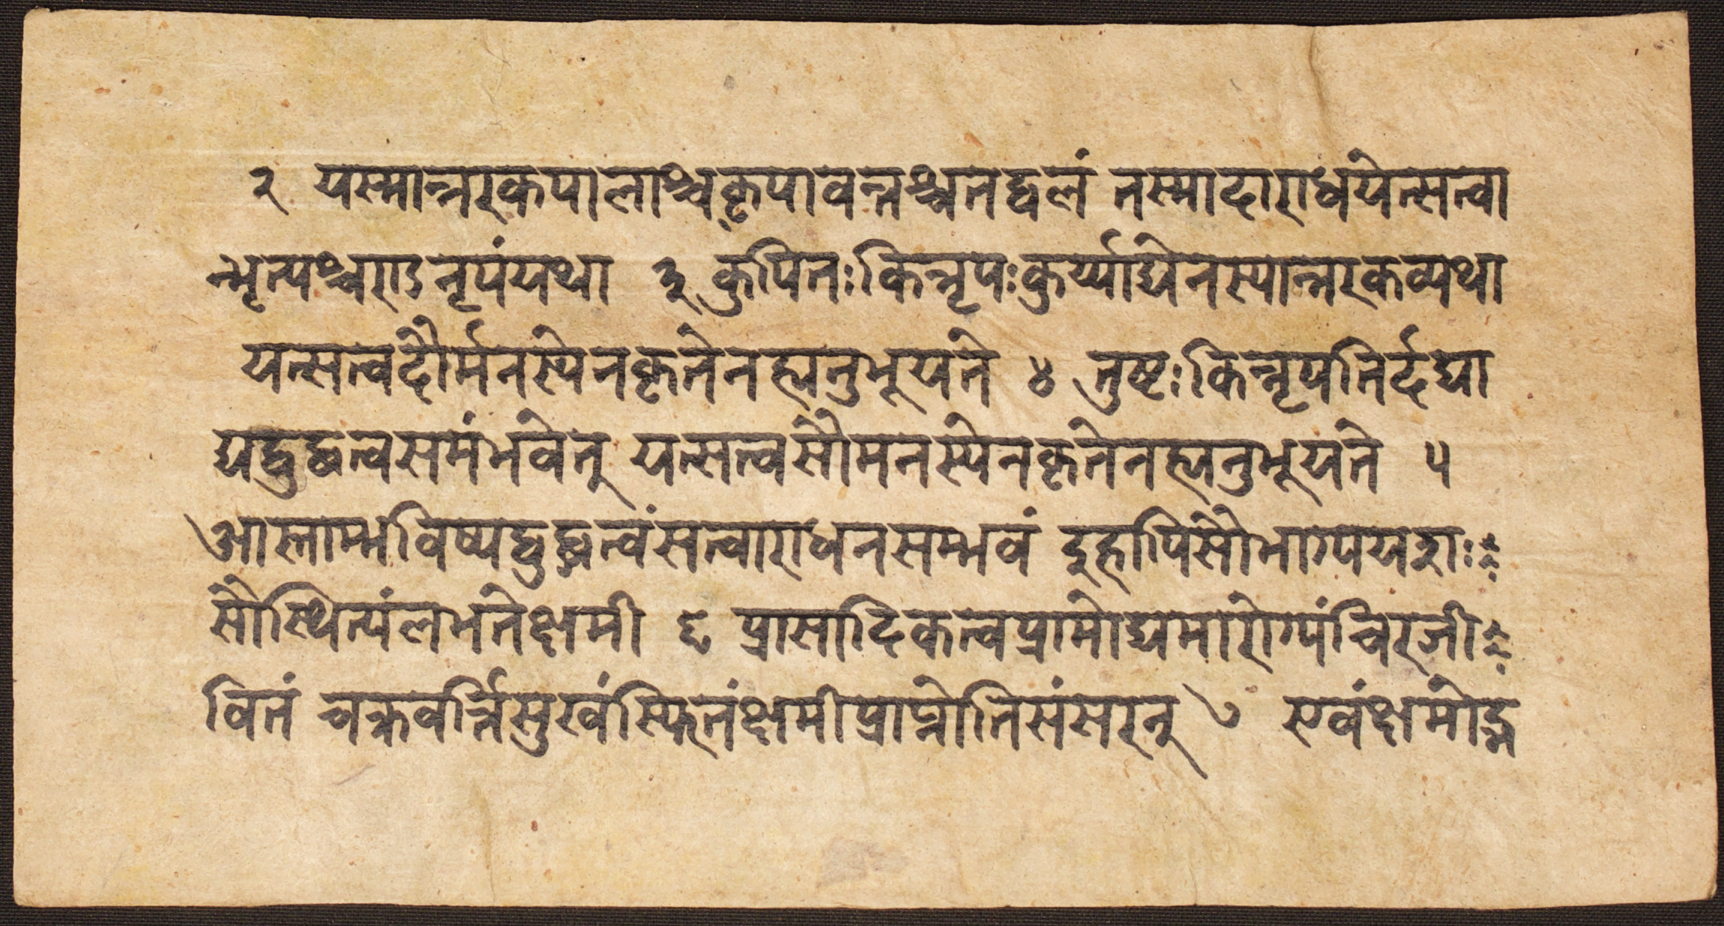 २ यस्मान्नरकपालाश्च कृपावन्तश्च तद्बलं तस्मादाराधयेत्सत्वा
न्भृत्यश्चराऽ नृपं यथा ३ कुपितः किन्नृपः कुर्य्याद्येनस्यान्नरकव्यथा
यत्सत्वदौर्मनस्येन कृतेन ह्यनुभूयते ४ तुष्टः किन्नृपतिर्दद्या
द्यद्बुद्धत्वसमं भवेत् यत्सत्वसौमनस्येन कृतेन ह्यनुभूयते ५
आस्ताम्भविष्यद्बुद्धत्वं सत्वाराधनसम्भवं इहापि सौभाग्ययशः
सौस्थित्यं लभते क्षमी ६ प्रासादिकत्वप्रामोद्यमारोग्यं चिरजी
वितं चक्रवर्त्तिसुखं स्फितं क्षमी प्राप्नोति संसरन् ७ एवं क्षमो